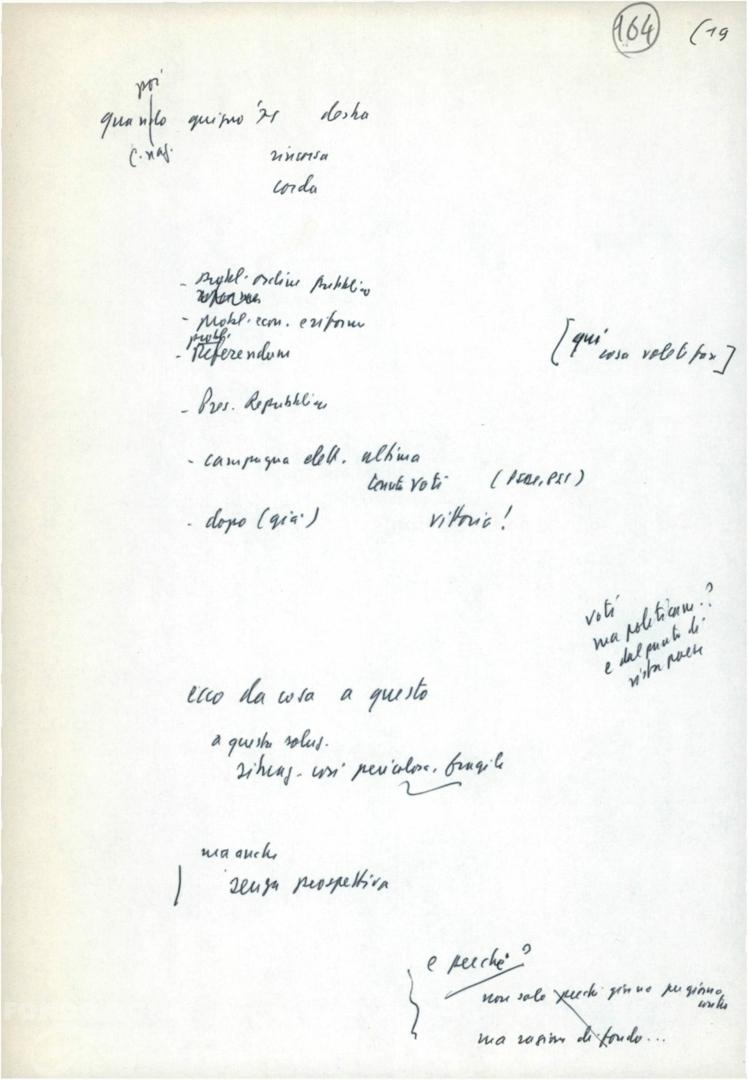 164 (19
poi
quando giugno '71 destra
C. naz.
rincorsa
corda
- probl. ordine pubblico
- probl. econ. e riforme
probl.
- Referendum
[qui
cosa volete fare]
- Pres. Repubblica
- campagna dell. ultima
tenuta voti (PSDI, PSI)
- dopo (già) vittoria!
voti
ma politicam.?
e dal punto di
vista paese
ecco da cosa a questo
a questa soluz.
così pericolosa, fragile
ma anche
senza prospettiva
e perché?
non solo perché giorno per giorno
ma ragioni di fondo...